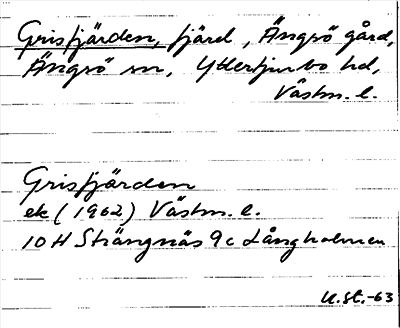 Grisfjärden, fjärd, Ängsö gård,
Ängsö sn, Yttertjurbo hd,
Västm. l.
Grisfjärden
ek (1962) Västm. l.
10 H Strängnäs 9c Långholmen
U.St.-63